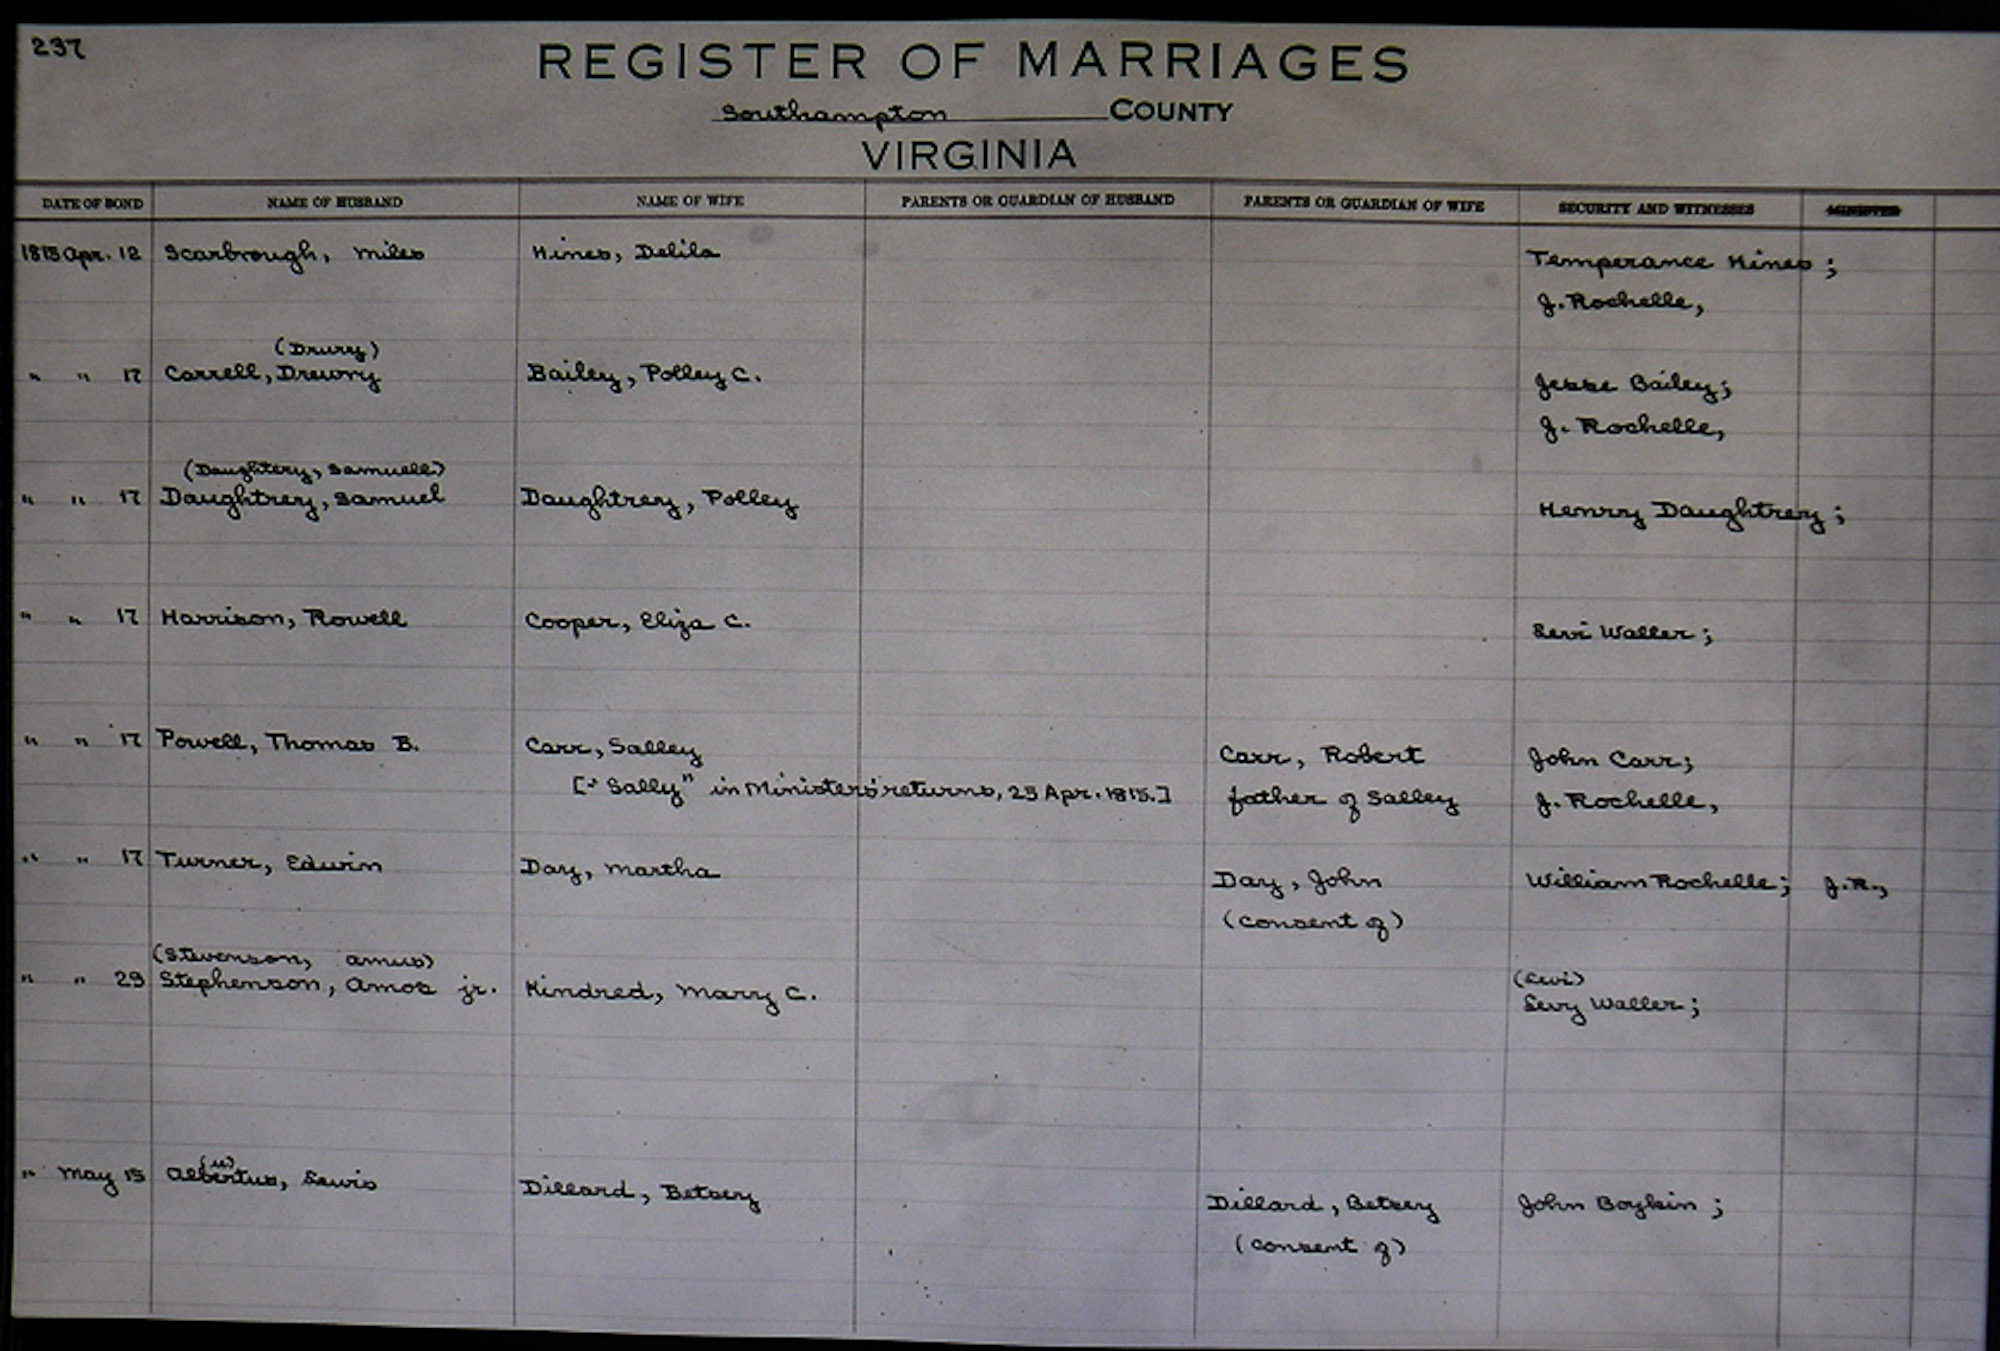 237
REGISTER OF MARRIAGES
Southampton COUNTY
VIRGINIA
DATE OF BOND NAME OF HUSBAND NAME OF WIFE PARENTS OR GUARDIAN OF HUSBAND PARENTS OR GUARDIAN OF WIFE SECURITY AND WITNESSES MINISTER
1815 Apr. 12 Scarbrough, Miles Hines, Delila Temperance Hines;
J. Rochelle,
(Drury)
" " 17 Carrell, Drewry Bailey, Polley C. Jesse Bailey;
J. Rochelle,
(Daughtery, Samuell)
" " 17 Daughtrey, Samuel Daughtrey, Polley Henry Daughtrey;
" " 17 Harrison, Rowell Cooper, Eliza C. Levi Waller;
" " 17 Powell, Thomas B. Carr, Salley Carr, Robert John Carr;
["Sally" in Ministers' returns, 25 Apr. 1815.] father of Salley J. Rochelle,
" " 17 Turner, Edwin Day, Martha Day, John William Rochelle; J.R.,
(consent of)
(Stevenson, Amus) (Levi)
" " 29 Stephenson, Amos jr. Kindred, Mary C. Levy Waller;
(u)
" May 15 Albertus, Lewis Dillard, Betsey Dillard, Betsey John Boykin;
(consent of)